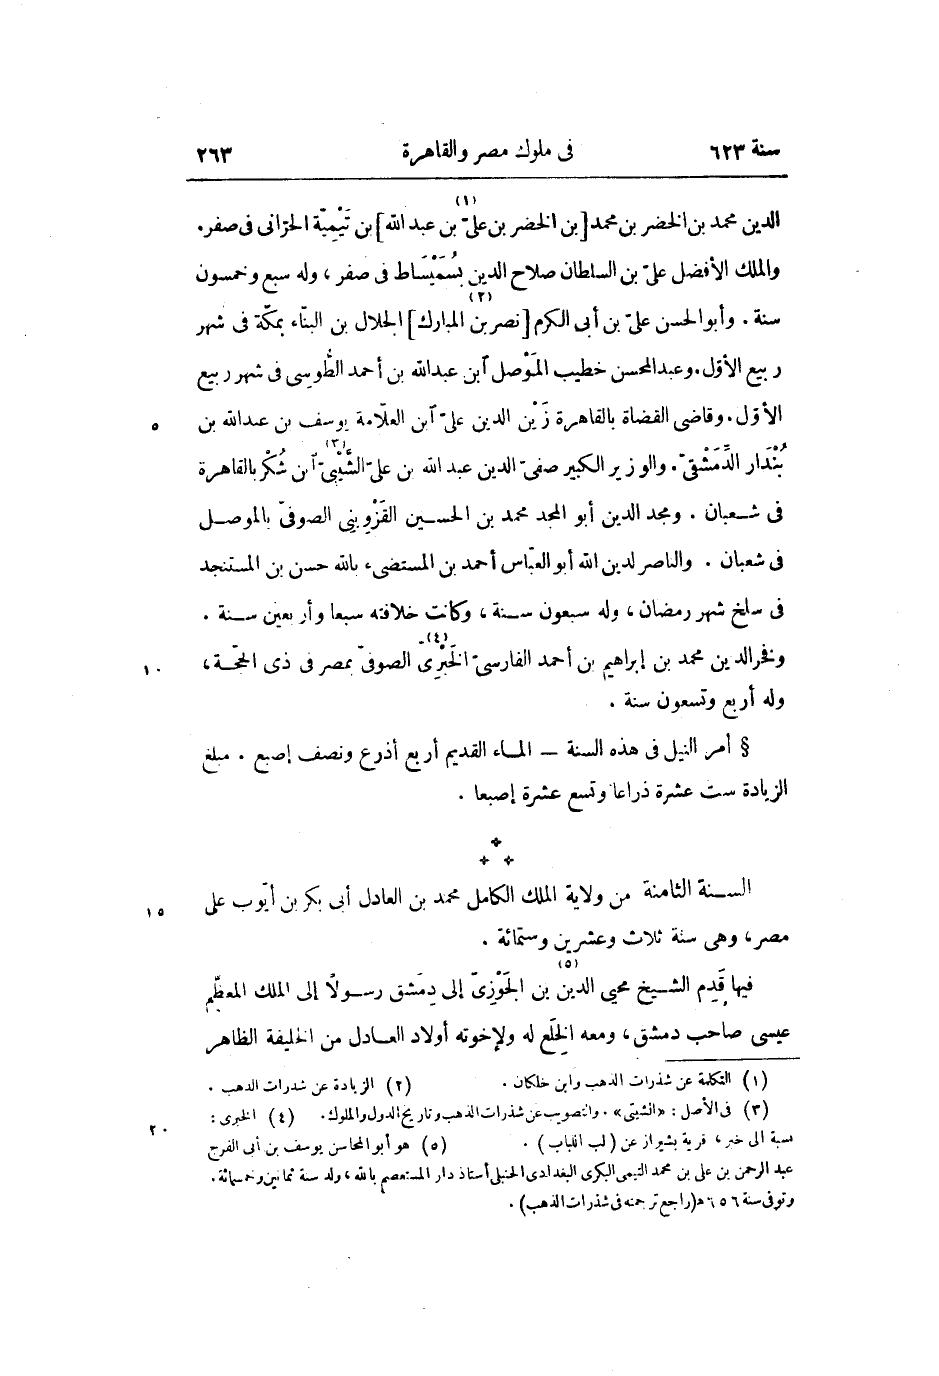 سنة ٦٢٣ فى ملوك مصر والقاهرة ٢٦٣
الدين محمد بن الخضر بن محمد [بن الخضر بن علىّ بن عبد الله] (١) بن تَيْمِيّة الحرّانى فى صفر.
والملك الأفضل علىّ بن السلطان صلاح الدين بسُمَيْسَاط فى صفر، وله سبع وخمسون
سنة. وأبو الحسن علىّ بن أبى الكرم [نصر بن المبارك] (٢) الجلال بن البنّاء بمكّة فى شهر
ربيع الأوّل. وعبد المحسن خطيب المَوْصل آبن عبد الله بن أحمد الطُّوسى فى شهر ربيع
الأوّل. وقاضى القضاة بالقاهرة زَيْن الدين علىّ آبن العلّامة يوسف بن عبد الله بن ٥
بُنْدَار الدِّمَشْقىّ. والوزير الكبير صفىّ الدين عبد الله بن علىّ الشَّيْبىّ (٣) آبن شُكْر بالقاهرة
فى شعبان. ومجد الدين أبو المجد محمد بن الحسين القَزْوِينِى الصوفىّ بالموصل
فى شعبان. والناصر لدين الله أبو العبّاس أحمد بن المستضىء بالله حسن بن المستنجد
فى سلخ شهر رمضان، وله سبعون سنة، وكانت خلافته سبعا وأربعين سنة.
وفخر الدين محمد بن إبراهيم بن أحمد الفارسىّ الخَبْرِى (٤) الصوفىّ بمصر فى ذى الحجّة، ١٠
وله أربع وتسعون سنة.
§ أمر النيل فى هذه السنة — الماء القديم أربع أذرع ونصف إصبع. مبلغ
الزيادة ست عشرة ذراعا وتسع عشرة إصبعا.
السنة الثامنة من ولاية الملك الكامل محمد بن العادل أبى بكر بن أيّوب على
مصر، وهى سنة ثلاث وعشرين وستمائة. ١٥
فيها قَدِم الشيخ محيى الدين بن الجَوْزِىّ (٥) إلى دِمَشق رسولًا إلى الملك المعظّم
عيسى صاحب دمشق، ومعه الخِلَع له ولإخوته أولاد العادل من الخليفة الظاهر
(١) التكملة عن شذرات الذهب وابن خلكان. (٢) الزيادة عن شذرات الذهب.
(٣) فى الأصل: «الشيتى». والتصويب عن شذرات الذهب وتاريخ الدول والملوك. (٤) الخبرى:
نسبة الى خبر، قرية بشيراز عن (لب اللباب). (٥) هو أبو المحاسن يوسف بن أبى الفرج ٢٠
عبد الرحمن بن على بن محمد التيمى البكرى البغدادى الحنبلى أستاذ دار المستعصم بالله، ولد سنة ثمانين وخمسمائة.
وتوفى سنة ٦٥٦ هـ (راجع ترجمته فى شذرات الذهب).